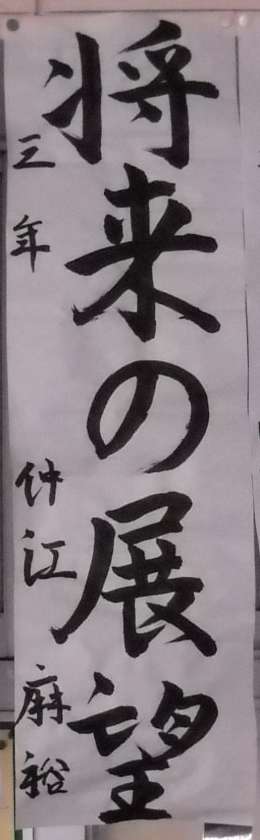 将来の展望
三年 仲江麻裕